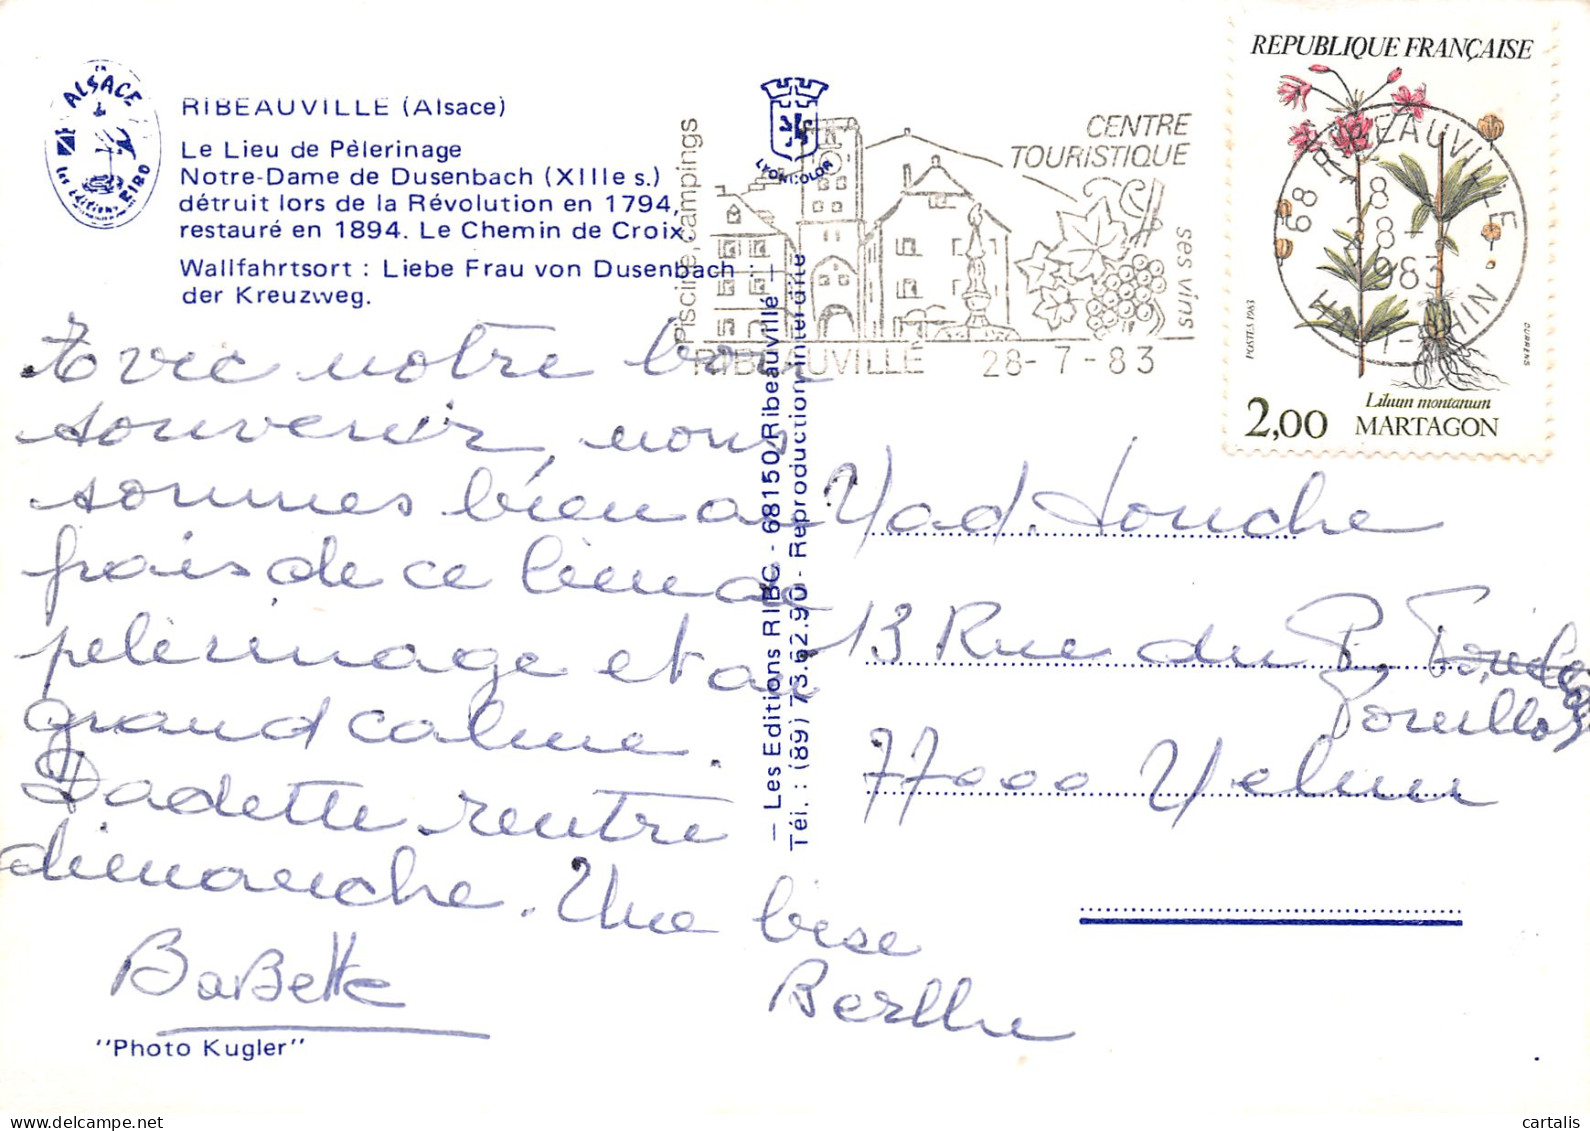 EN
ALSACE
les éditions RIBO
RIBEAUVILLE (Alsace)
Le Lieu de Pèlerinage
Notre-Dame de Dusenbach (XIIIe s.)
détruit lors de la Révolution en 1794,
restauré en 1894. Le Chemin de Croix.
Wallfahrtsort : Liebe Frau von Dusenbach :
der Kreuzweg.
LYONCOLOR
Piscine campings
CENTRE
TOURISTIQUE
ses vins
RIBEAUVILLÉ 28-7-83
REPUBLIQUE FRANÇAISE
68 RIBEAUVILLE
28-7
1983
HAUT-RHIN
POSTES 1983
DURRENS
Lilium montanum
2,00 MARTAGON
Avec notre bon
souvenir, nous
sommes bien au
frais de ce lieu de
pélérinage et au
grand calme.
Dadette rentre
dimanche. Une bise
BaBette
Berthe
"Photo Kugler"
— Les Editions RIBO - 68150 Ribeauvillé —
Tél. : (89) 73.62.90 - Reproduction interdite
Mad. Houche
13 Rue du P.
77000 Melun